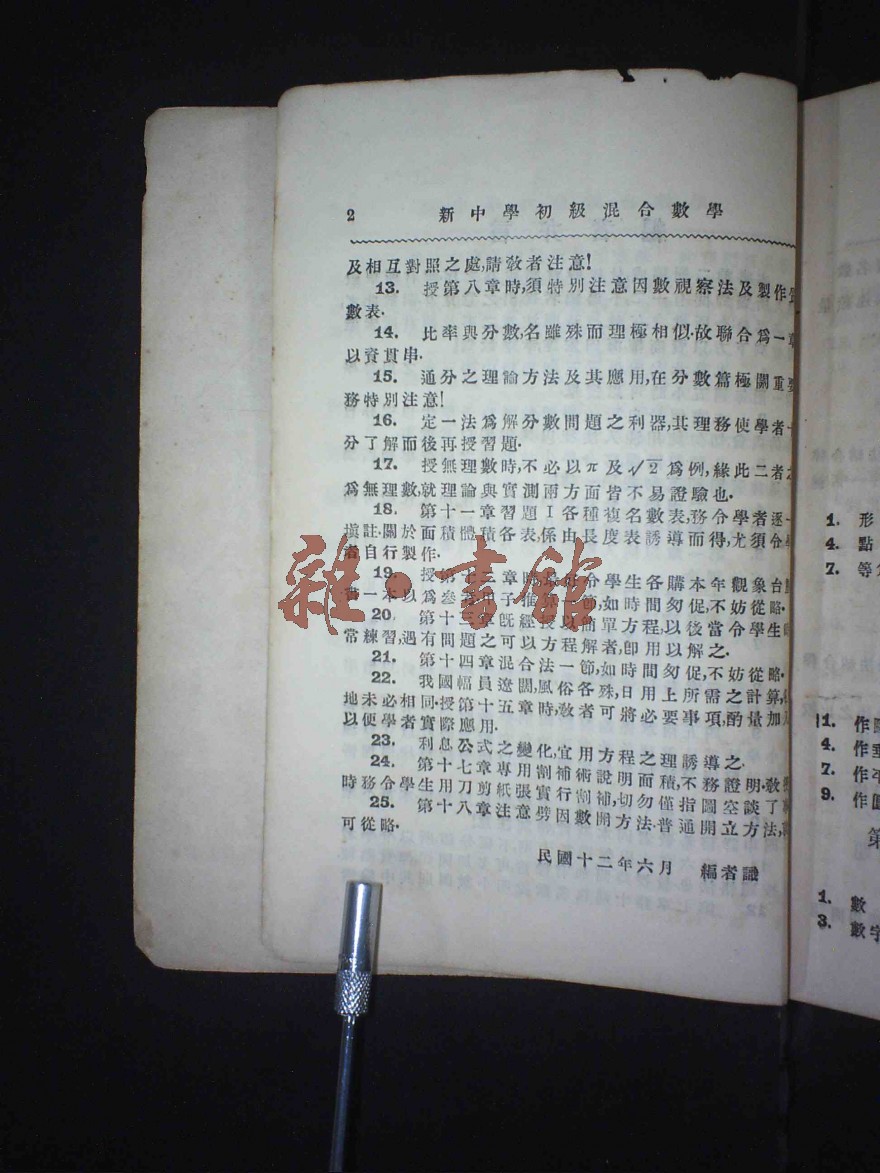 2 新中學初級混合數學
及相互對照之處,請敎者注意!
13. 授第八章時,須特別注意因數視察法及製作
數表.
14. 比率與分數,名雖殊而理極相似.故聯合爲一章
以資貫串.
15. 通分之理論方法及其應用,在分數篇極關重要
務特別注意!
16. 定一法爲解分數問題之利器,其理務使學者
分了解而後再授習題.
17. 授無理數時,不必以π及√2爲例,緣此二者之
爲無理數,就理論與實測兩方面皆不易證驗也.
18. 第十一章習題Ⅰ各種複名數表,務令學者逐一
塡註.關於面積體積各表,係由長度表誘導而得,尤須令學
者自行製作.
19. 授第十三章時,最好令學生各購本年觀象台
書一本以爲參考用.子推算一節,如時間匆促,不妨從略.
20. 第十三章旣經授以簡單方程,以後當令學生
常練習,遇有問題之可以方程解者,卽用以解之.
21. 第十四章混合法一節,如時間匆促,不妨從略.
22. 我國幅員遼闊,風俗各殊,日用上所需之計算,
地未必相同.授第十五章時,敎者可將必要事項,酌量加
以便學者實際應用.
23. 利息公式之變化,宜用方程之理誘導之.
24. 第十七章專用割補術說明面積,不務證明.敎
時務令學生用刀剪紙張實行割補,切勿僅指圖空談了
25. 第十八章注意劈因數開方法.普通開立方法,
可從略.
民國十二年六月 編者識
雜·書館
1. 形
4. 點
7. 等
11. 作圓
4. 作垂
7. 作平
9. 作圓
第
1. 數
3. 數字